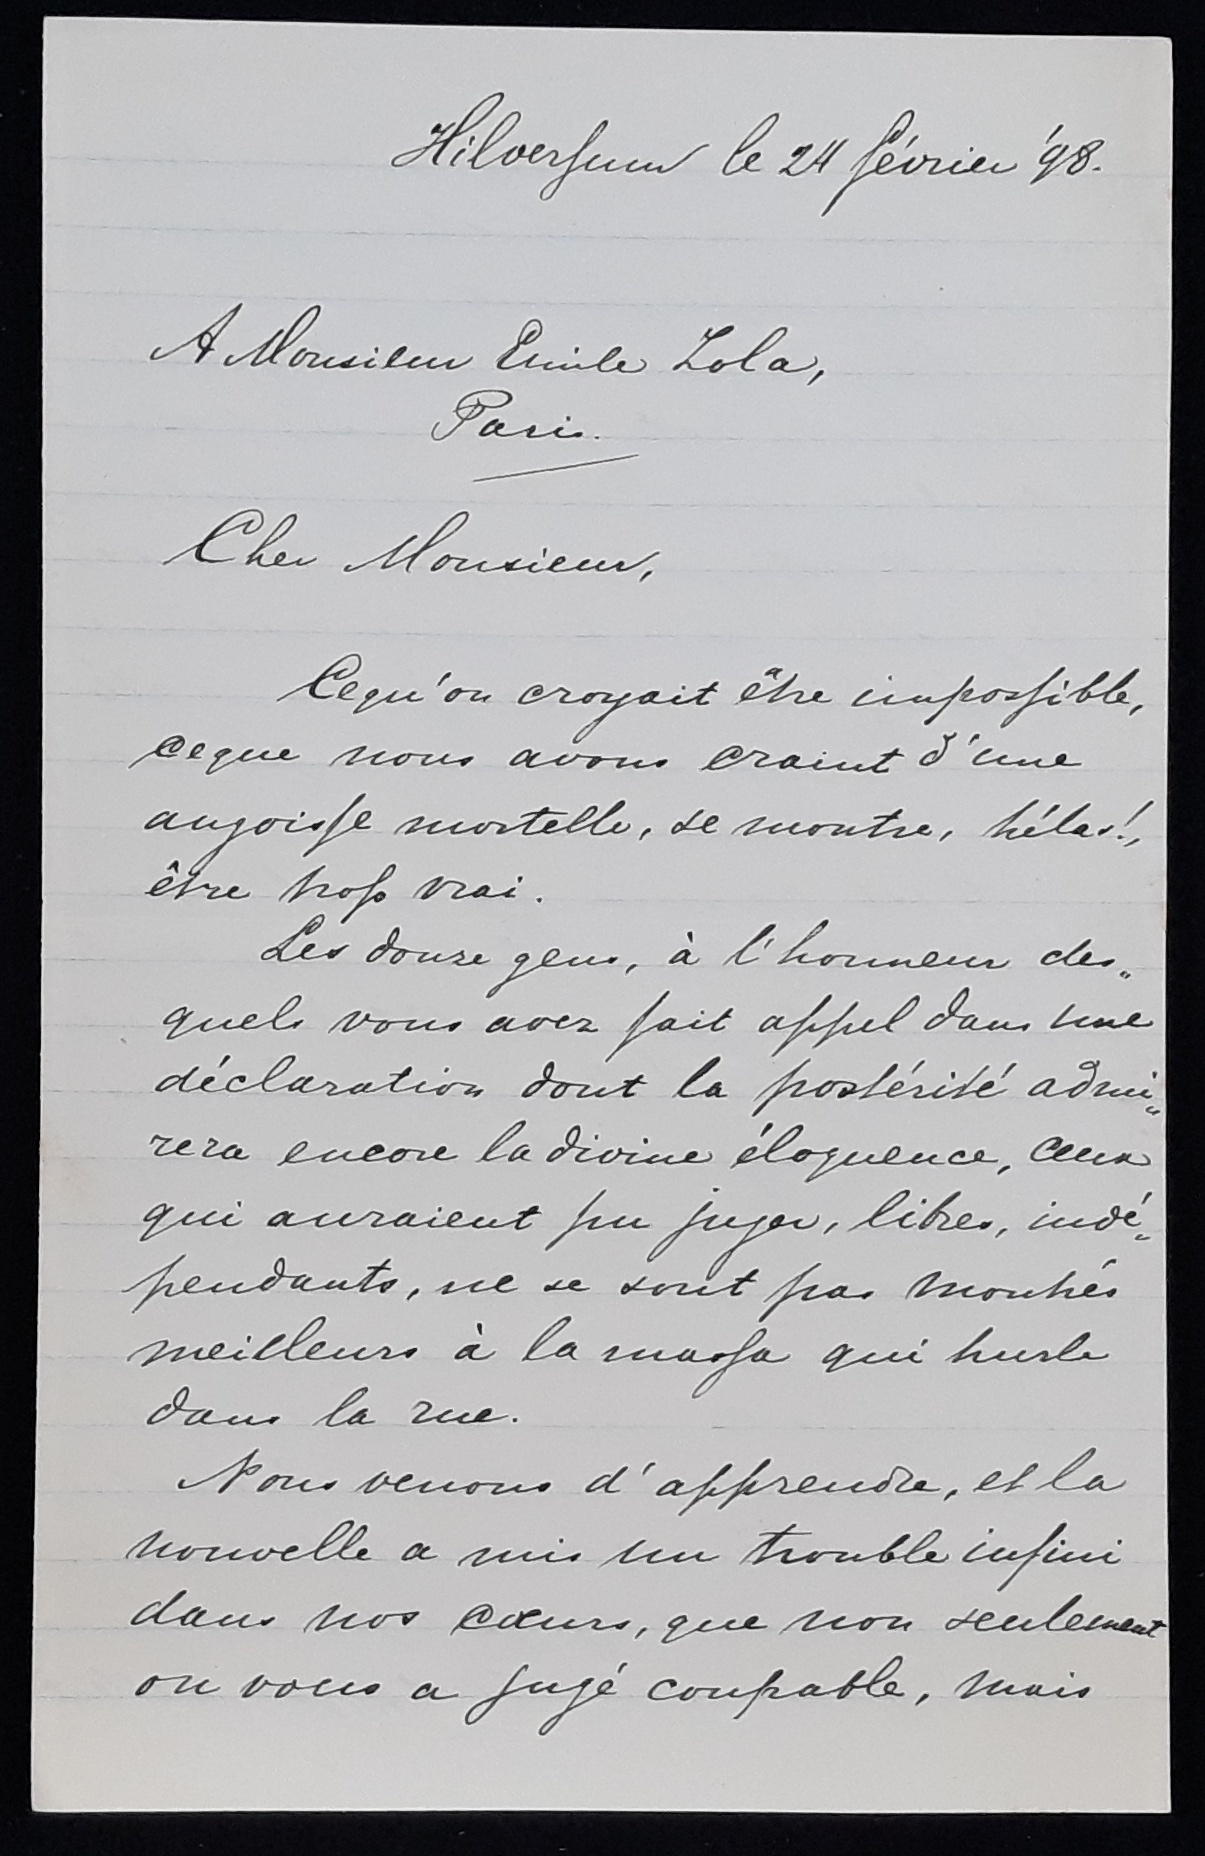 Hilversum le 24 février '98.
A Monsieur Emile Zola,
Paris.
Cher Monsieur,
Cequ'on croyait être impossible,
ceque nous avons craint d'une
angoisse mortelle, se montre, hélas!,
être trop vrai.
Les douze gens, à l'honneur des„
quels vous avez fait appel dans une
déclaration dont la postérité admi„
rera encore la divine éloquence, ceux
qui auraient pu juger, libres, indé„
pendants, ne se sont pas montrés
meilleurs à la massa qui hurle
dans la rue.
Nous venons d'apprendre, et la
nouvelle a mis un trouble infini
dans nos cœurs, que non seulement
on vous a jugé coupable, mais